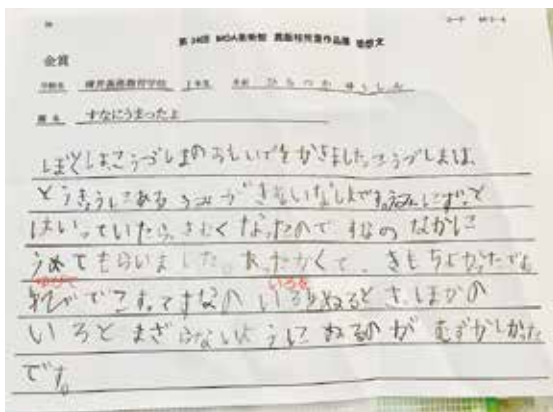 第 回 MOA美術館 児童作品展 感想文
金賞
学校名 義務教育学校 1年 名前 ひらつか
題名 すなにうまったよ
ぼくは、こうづしまのおもいでをかきました。こうづしまは、
とうきょうにある うみがきれいなしまです。うみにずっと
はいっていたら、さむくなったので すなの なかに
うめてもらいました。あったかくて、きもちよかったです。
ゆびで いろを
ゆびでこすってすなの いろをぬるとき、ほかの
いろと まざらないように ぬるのが むずかしかった
です。